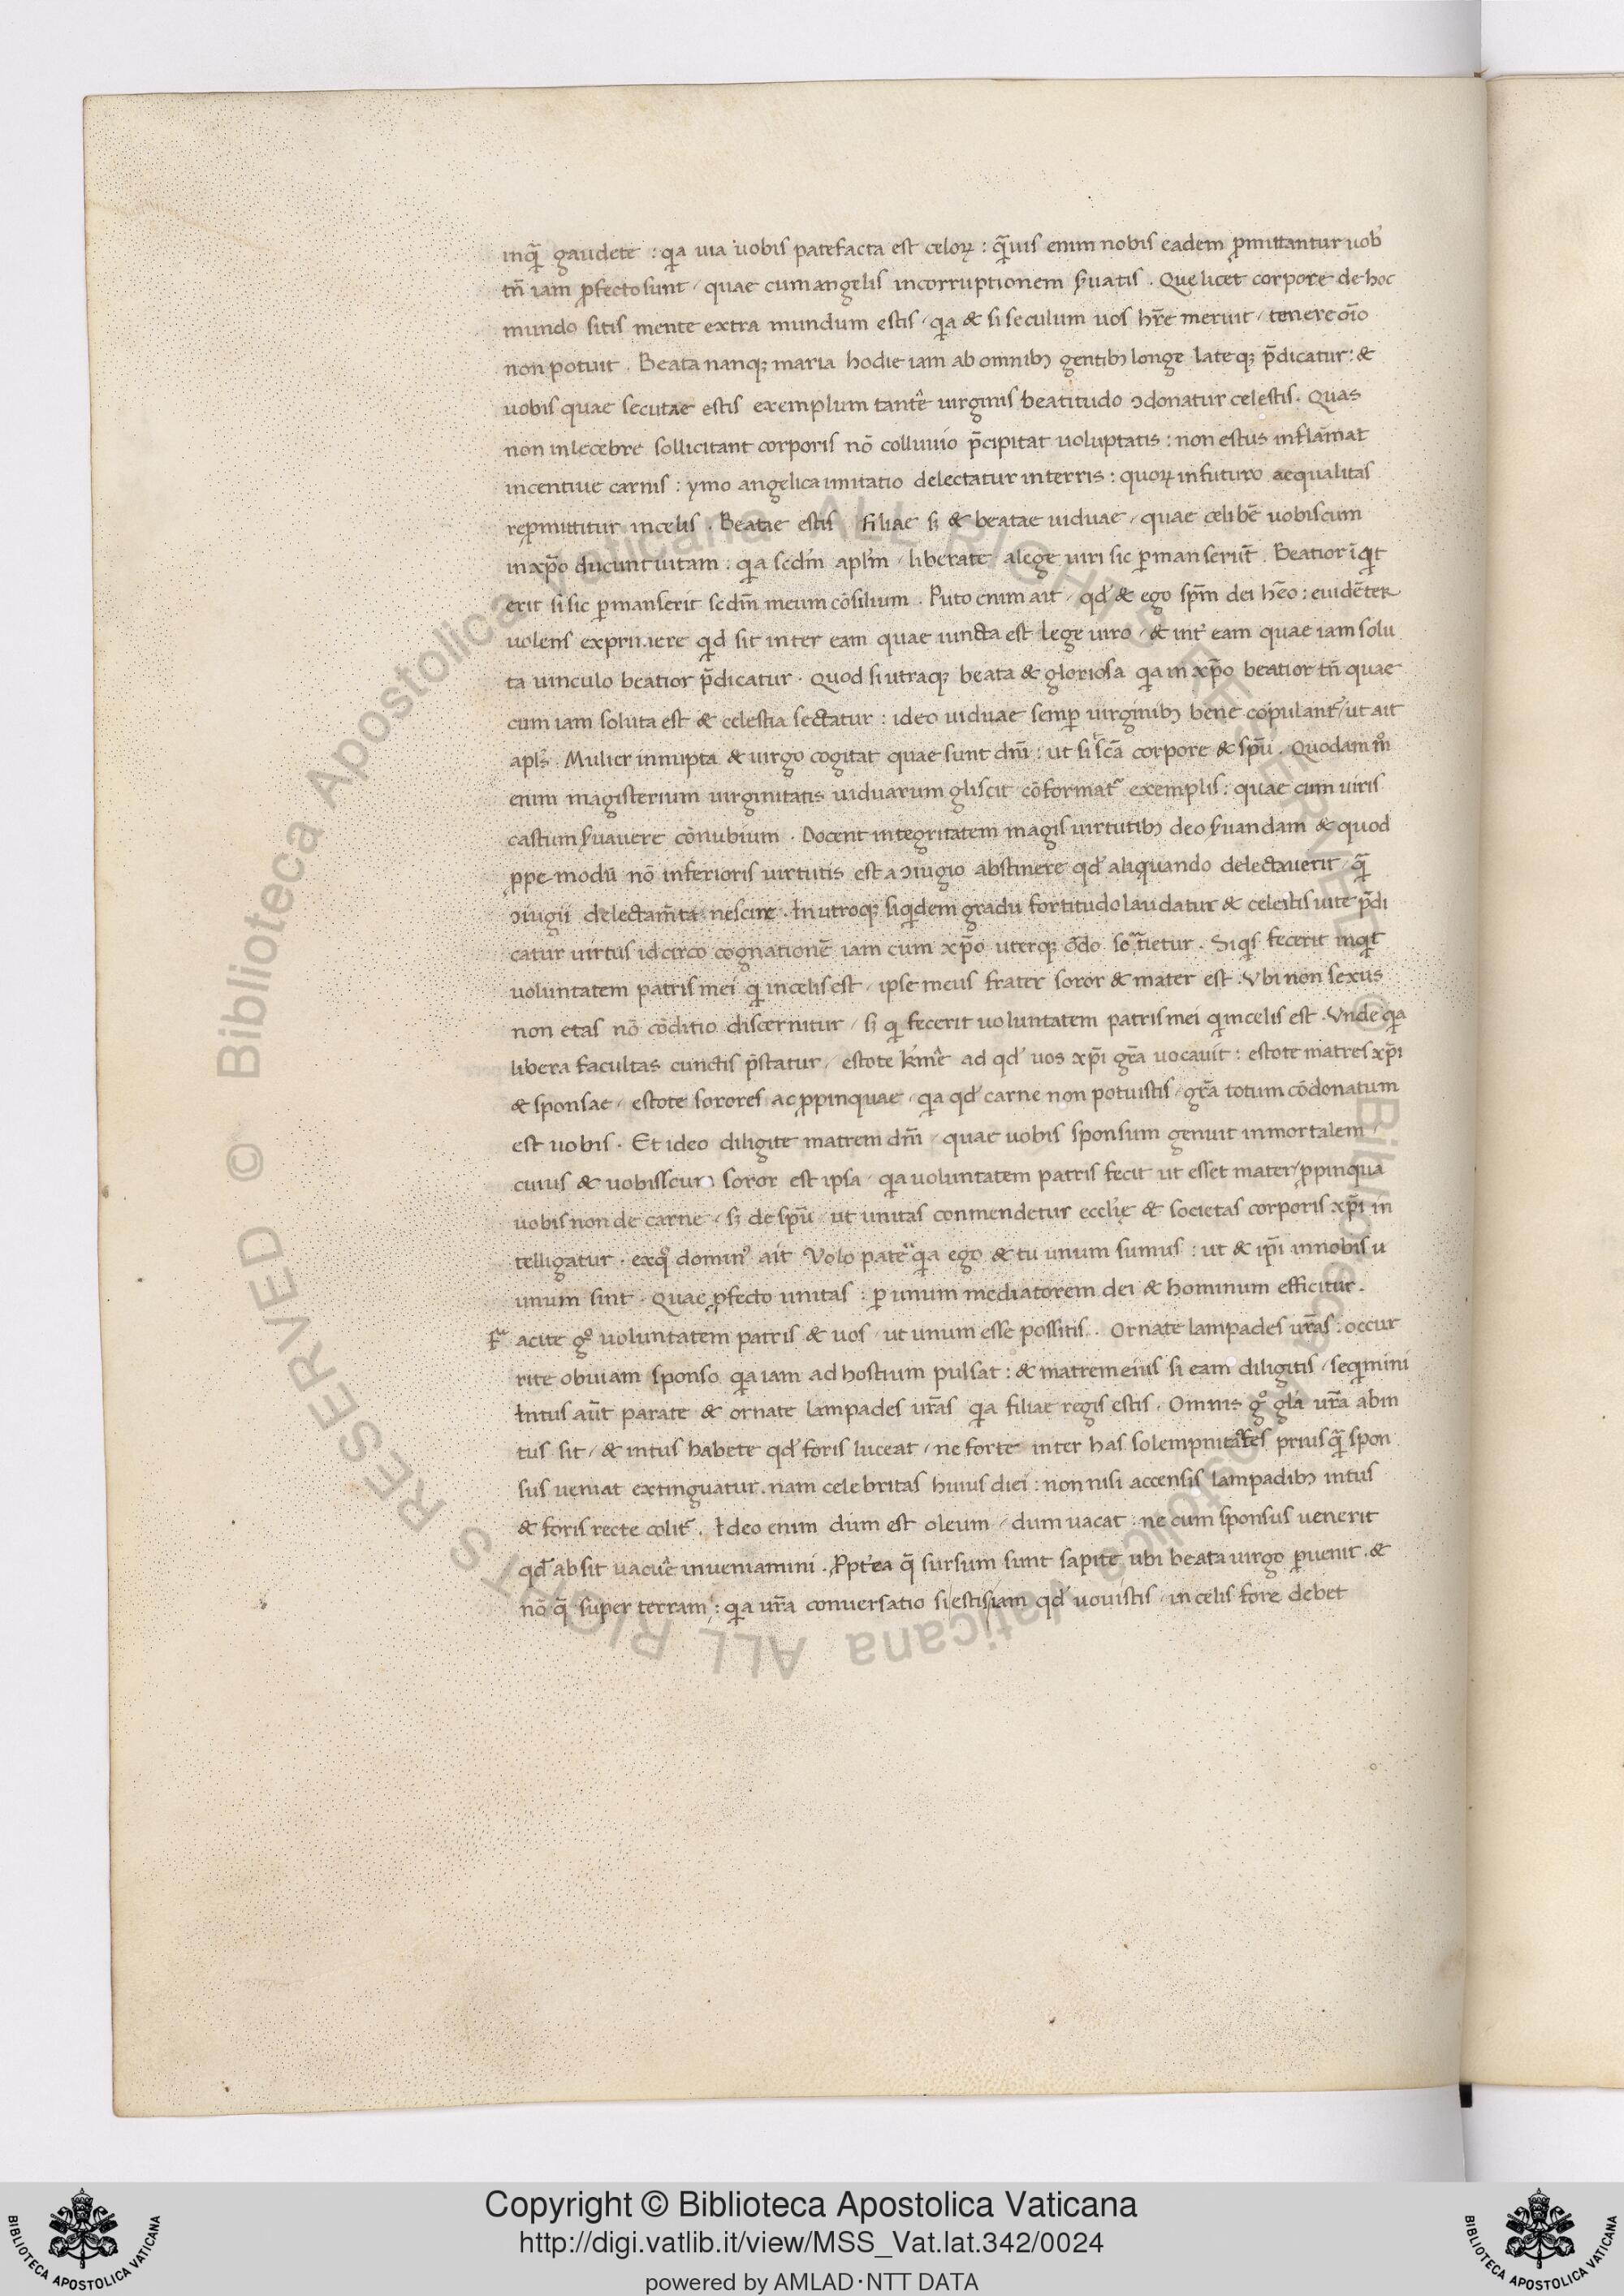 inq̃ gaudete : qa uia uobis patefacta est celoꝝ : q̃uis enim nobis eadem ꝓmittantur uob̾
tñ iam ꝓfecto sunt / quae cum angelis incorruptionem ẜuatis . Que licet corpore de hoc
mundo sitis mente extra mundum estis / qa & si seculum uos hr̃e meruit / tenere oĩo
non potuit . Beata nanqꝫ maria hodie iam ab omnibꝫ gentibꝫ longe lateqꝫ p̃dicatur : &
uobis quae secutae estis exemplum tantę uirginis beatitudo ↄdonatur celestis . Quas
non inlecebre sollicitant corporis nõ colluuio p̃cipitat uoluptatis : non estus inflãmat
incentiue carnis : ymo angelica imitatio delectatur in terris : quoꝝ in futuro aequalitas
reꝓmittitur in celis . Beatae estis filiae sꝫ & beatae uiduae / quae celibẽ uobiscum
in xp̃o ducunt uitam : qa scdm̃ apl̃m / liberate a lege uiri sic ꝑmanserit̃ . Beatior ĩqt
erit si sic ꝑmanserit scdm̃ meum cõsilium . Puto enim ait / qd̾ & ego sp̃m dei hẽo : euidẽter
uolens exprimere qd sit inter eam quae iuncta est lege uiro / & int̾ eam quae iam solu
ta uinculo beatior p̃dicatur . Quod si utraqꝫ beata & gloriosa qa in xp̃o beatior tñ quae
cum iam soluta est & celestia sectatur : ideo uiduae semꝑ uirginibꝫ bene copulant̾ / ut ait
apls̃ . Mulier innupta & uirgo cogitat quae sunt dñi : ut sit sc̃a corpore & spũ . Quodam mº
enim magisterium uirginitatis uiduarum gliscit cõformat̾ exemplis : quae cum uiris
castum ẜuauere cõnubium . Docent integritatem magis uirtutibꝫ deo ẜuandam & quod
ꝓpe modũ nõ inferioris uirtutis est a ↄiugio abstinere qd̾ aliquando delectauerit / q̃
ↄiugii delectam̃ta nescire . In utroqꝫ siqdem gradu fortitudo laudatur & celestis uite p̃di
catur uirtus idcirco cognationẽ iam cum xp̃o uterqꝫ õdo sortietur . Siqs fecerit inqt
uoluntatem patris mei q in celis est / ipse meus frater soror & mater est . Vbi non sexus
non etas nõ cõditio discernitur / sꝫ q fecerit uoluntatem patris mei q in celis est . Vnde qa
libera facultas cunctis p̃statur / estote km̃ę ad qd̾ uos xp̃i gr̃a uocauit : estote matres xp̃i
& sponsae / estote sorores ac ꝓpinquae / qa qd̾ carne non potuistis / gr̃a totum cõdonatum
est uobis . Et ideo diligite matrem dñi / quae uobis sponsum genuit inmortalem /
cuius & uobisscum soror est ipsa / qa uoluntatem patris fecit ut esset mater / ꝓpinqua
uobis non de carne / sꝫ de spũ / ut unitas conmendetur eccl̃ię & societas corporis xp̃i in
telligatur . exqº dominꝰ ait Volo pater qa ego & tu unum sumus : ut & ip̃i in nobis u
unum sint . Quae ꝓfecto unitas : ꝑ unum mediatorem dei & hominum efficitur .
F acite gº uoluntatem patris & uos / ut unum esse possitis . Ornate lampades ur̃as : occur
rite obuiam sponso qa iam ad hostium pulsat : & matrem eius si eam diligitis / seqmini
Intus aũt parate & ornate lampades ur̃as qa filiae regis estis . Omnis gº gl̃a ur̃a ab in
tus sit / & intus habete qd̾ foris luceat / ne forte inter has solempnitates priusq̃ spon
sus ueniat extinguatur . nam celebritas huius diei : non nisi accensis lampadibꝫ intus
& foris recte colit̾ . Ideo enim dum est oleum / dum uacat : ne cum sponsus uenerit
qd̾ absit uacuę inueniamini . Ꝓpt̾ea q̃ sursum sunt sapite ubi beata uirgo ꝑuenit . &
nõ q̃ super terram : qa ur̃a conuersatio si estis iam qd̾ uouistis / in celis fore debet
Copyright © Biblioteca Apostolica Vaticana
http://digi.vatlib.it/view/MSS_Vat.lat.342/0024
powered by AMLAD·NTT DATA
BIBLIOTECA APOSTOLICA VATICANA
BIBLIOTECA APOSTOLICA VATICANA
© Biblioteca Apostolica Vaticana ALL RIGHTS RESERVED © Biblioteca Apostolica Vaticana ALL RIGHTS RESERVED